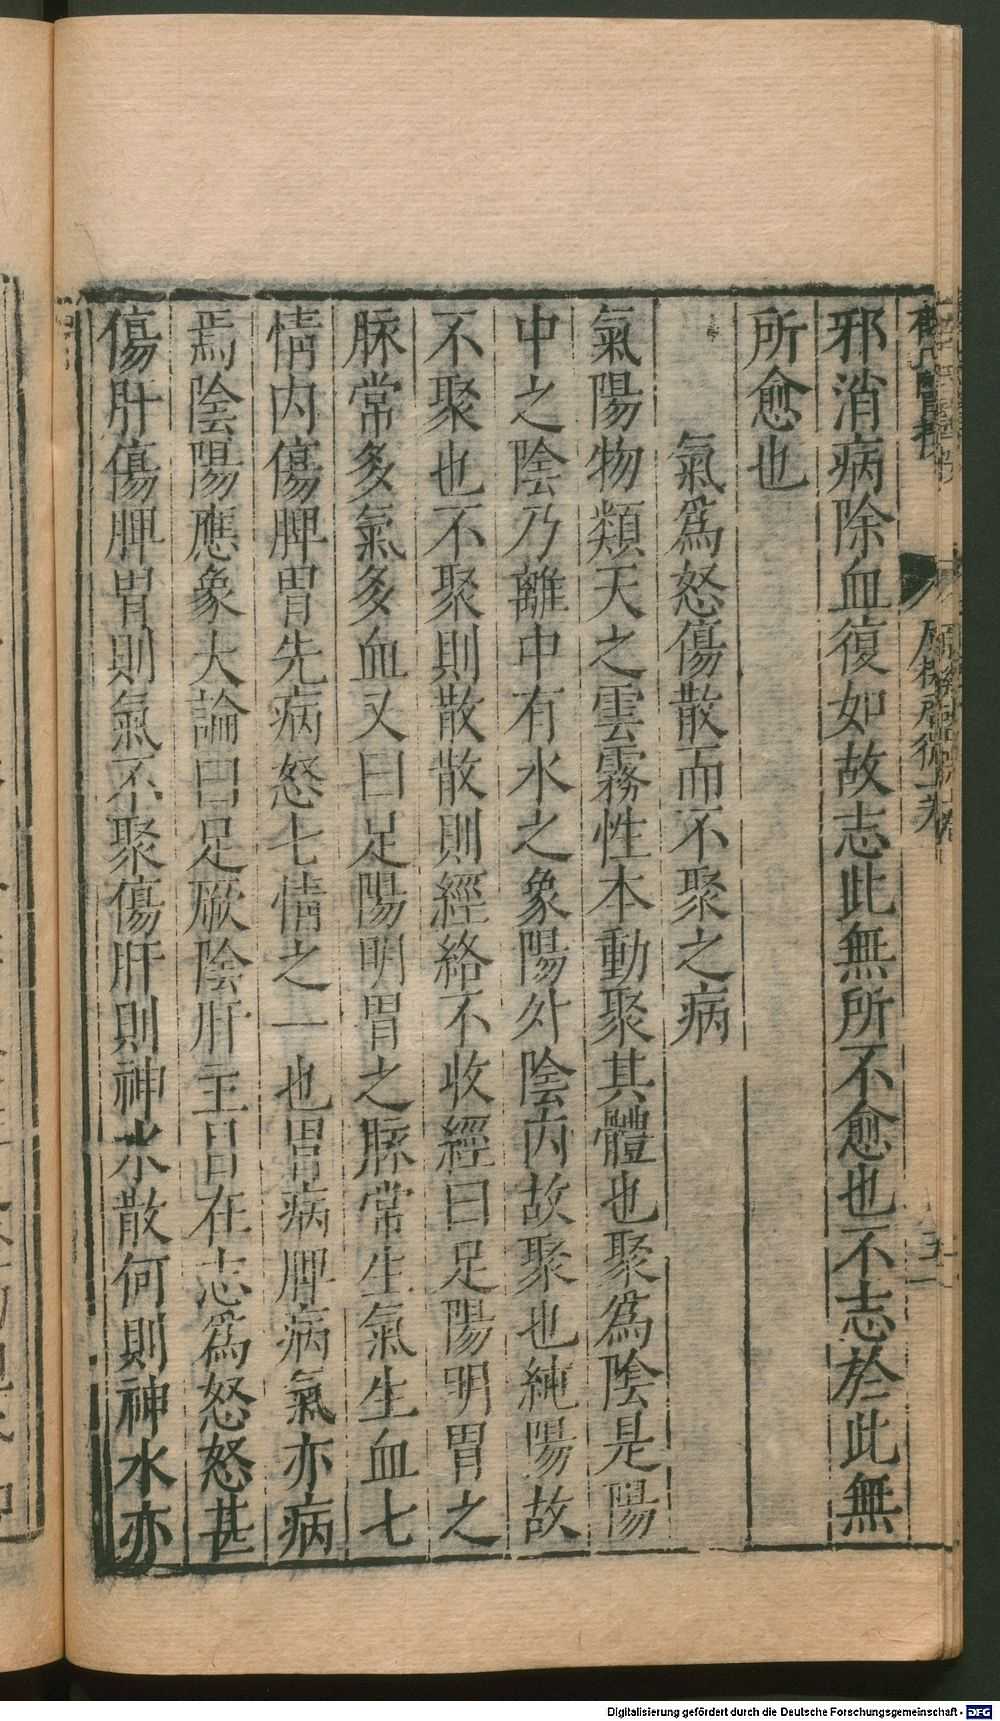 邪消病除血復如故志此無所不愈也不志於此無
所愈也
氣爲怒傷散而不聚之病
氣陽物類天之雲霧性本動聚其體也聚爲陰是陽
中之陰乃離中有水之象陽外陰内故聚也純陽故
不聚也不聚則散散則經絡不收經曰足陽明胃之
脉常多氣多血又曰足陽明胃之脉常生氣生血七
情内傷脾胃先病怒七情之一也胃病脾病氣亦病
焉陰陽應象大論曰足厥陰肝主目在志爲怒怒甚
傷肝傷脾胃則氣不聚傷肝則神水散何則神水亦
Digitalisierung gefördert durch die Deutsche Forschungsgemeinschaft - DFG